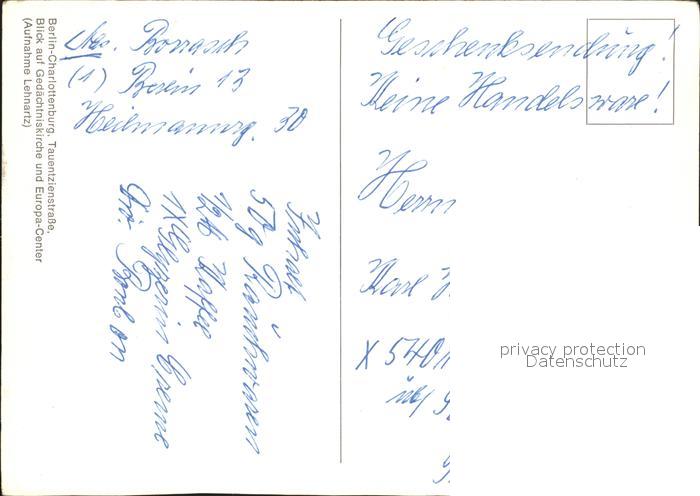 Berlin-Charlottenburg, Tauentzienstraße,
Blick auf Gedächtniskirche und Europa-Center
(Aufnahme Lehnartz)
Abs. Borrasch
(1) Berlin 13
Heilmannrg. 30
Inhalt
50g Rauchwaren
1/2 Kaffee
1x Glyzerin Creme
Div. Bonbon
Geschenksendung!
Keine Handelsware!
Herrn
Karl
X 540
üb/
privacy protection
Datenschutz